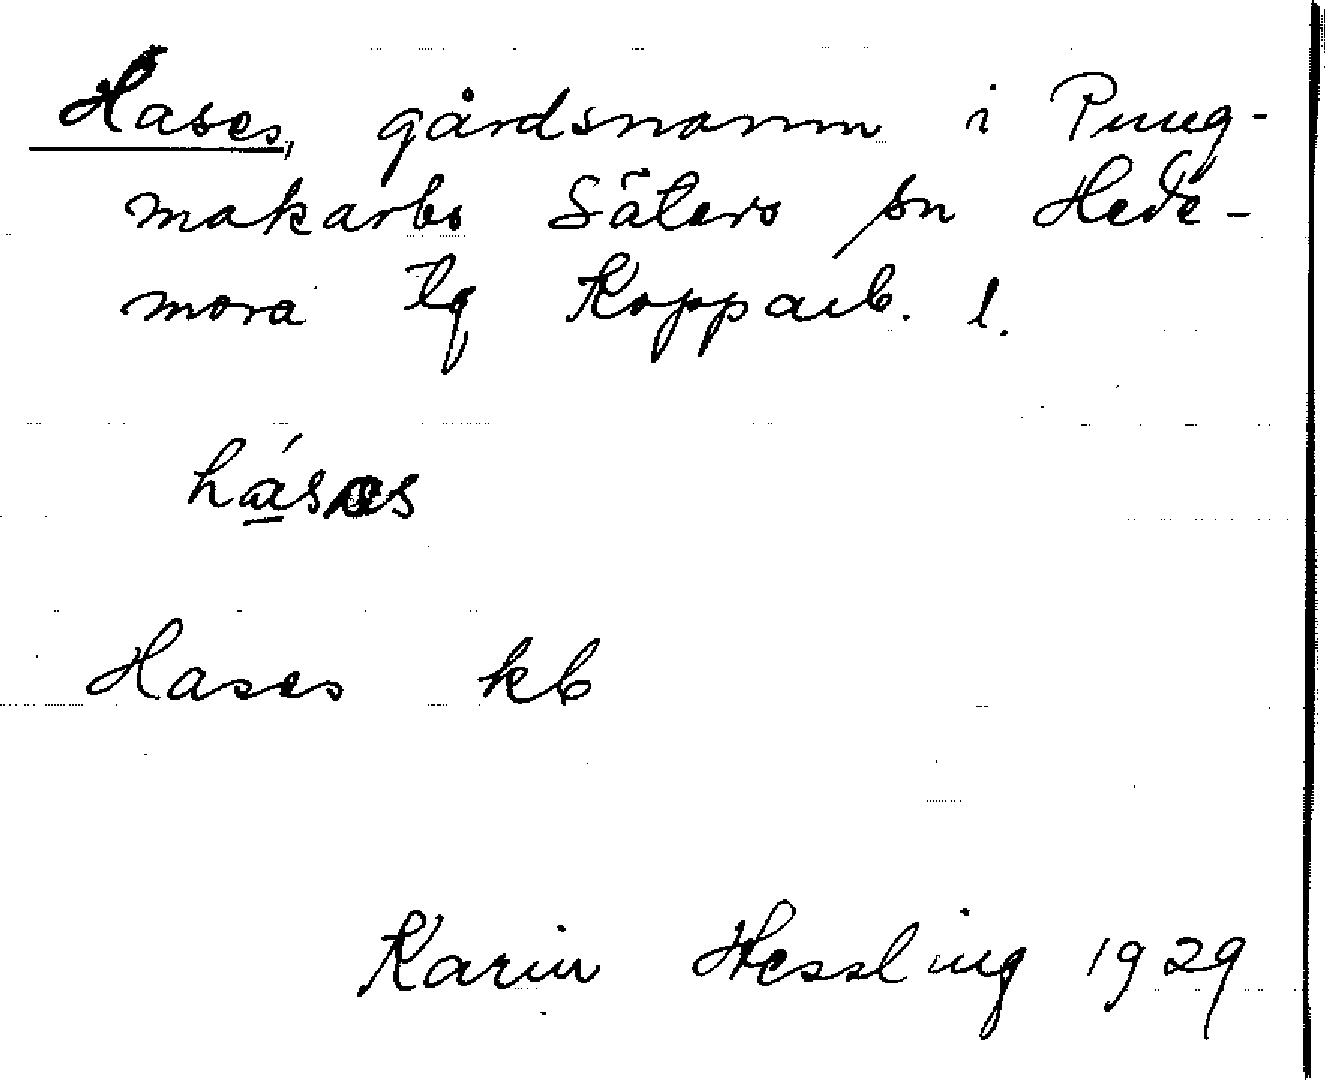 Hases, gårdsnamn i Pung-
makarbo Säters sn Hede-
mora tg Kopparb. l.
háses
Hases kb
Karin Hessling 1929